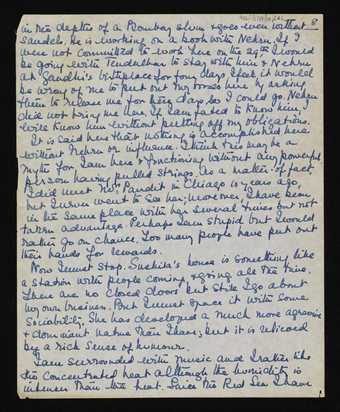 in the depths of a Bombay slum & goes even without 8
sandels. He is working on a book with Nehru. If I
were not committed to work here on the 29th I would
be going with Tendulkar to stay with him & Nehru
at Gandhi's birthplace for four days. I felt it would
be wrong of me to put out my hosts here by asking
them to release me for key days so I could go. Nehru
did not bring me here. If I am fated to know him I
will know him without putting off my obligations.
It is said here that nothing is accomplished here
without Nehru or influence. I think this may be a
myth for I am here & functioning without any powerful
person having pulled strings. As a matter of fact
I did meet Mrs Pandit in Chicago 10 years ago,
but I never went to see her; once here I have been
in the same place with her several times but not
taken advantage. Perhaps I am stupid but I would
rather go on chance. Too many people have put out
their hands for rewards.
Now I must stop. Sushila's house is something like
a station with people coming & going all the time.
There are no closed doors but still I go about
my own business. But I must space it with some
sociability. She has developed a much more agressive
& dominant nature than I have; but it is relieved
by a rich sense of humour.
I am surrounded with music and I rather like
the concentrated heat although the humidity is
intenser than the heat. Since the Red Sea I have